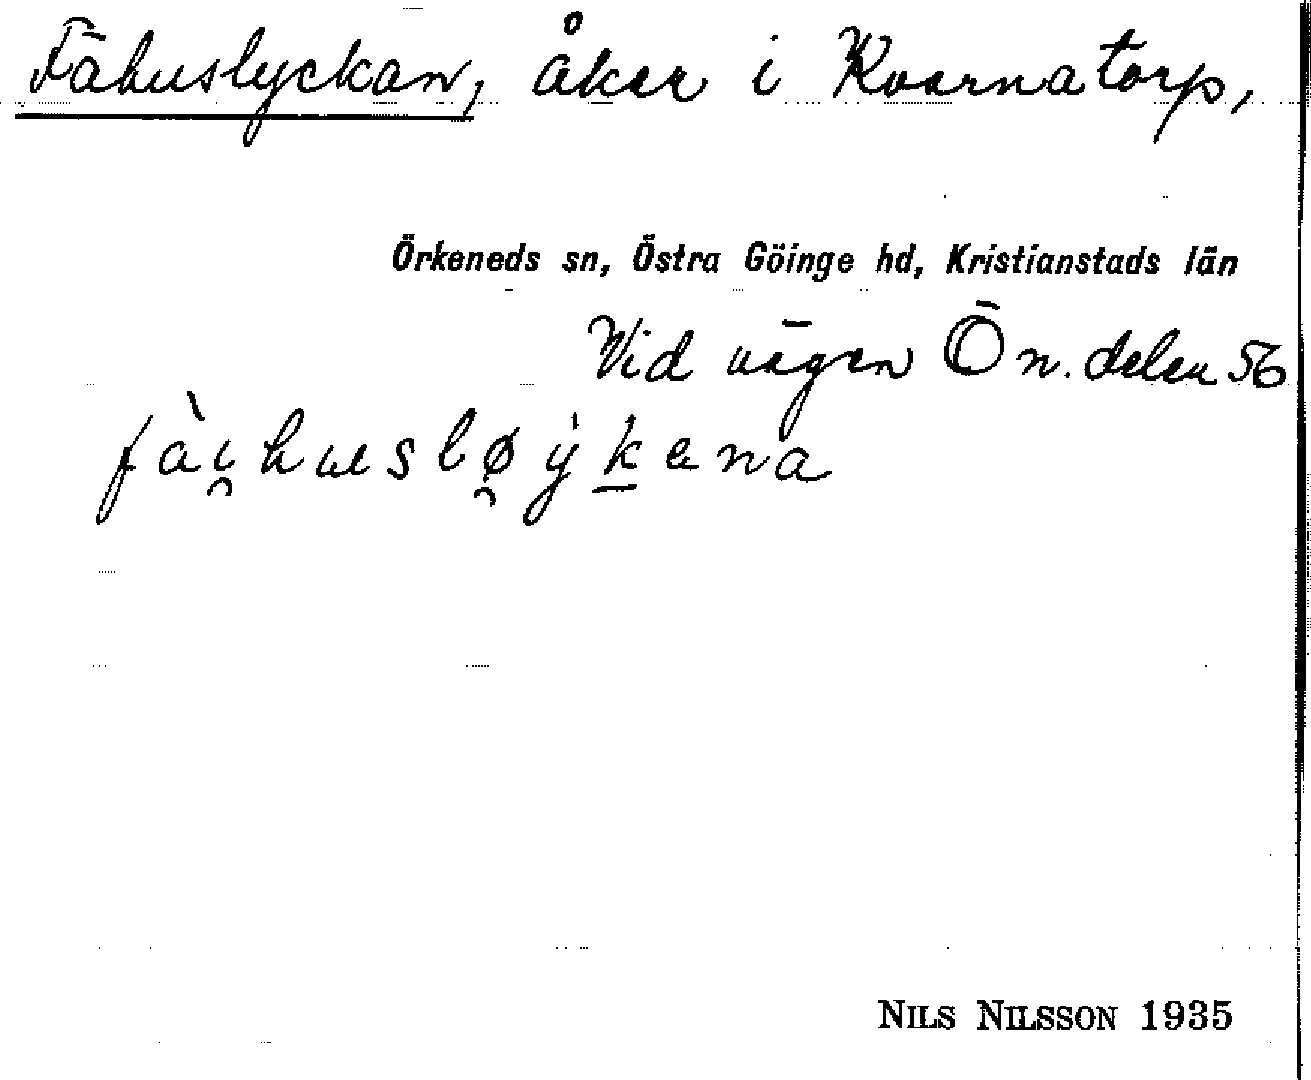 Fähuslyckan, åker i Kvarnatorp,
Örkeneds sn, Östra Göinge hd, Kristianstads län
Vid vägen Ö n. delen 56
fài̯huslø̯ẏk̲ena
NILS NILSSON 1935